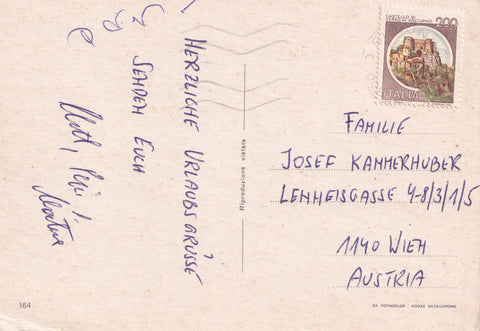 HERZLICHE URLAUBSGRÜSSE
SENDEN EUCH
164
Riproduzione vietata
CASTELLO DI
200
ITALIA
FAMILIE
JOSEF KAMMERHUBER
LENNEISGASSE 4-8/3/1/5
1140 WIEN
AUSTRIA
DA FOTOCOLOR - KODAK EKTACHROME